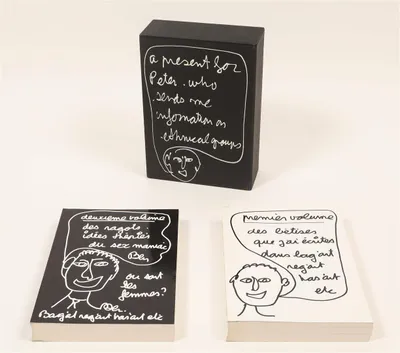 a present for
Peter. who
sends me
infomation on
ethnical groups
deuxieme volume
des ragots
idées
du sex maniac
Ben
ou sont
les
femmes?
Ben.
Bag'art reg'art has'art etc
premier volume
des betises
que j'ai écrites
dans bag'art
reg'art
has'art
etc